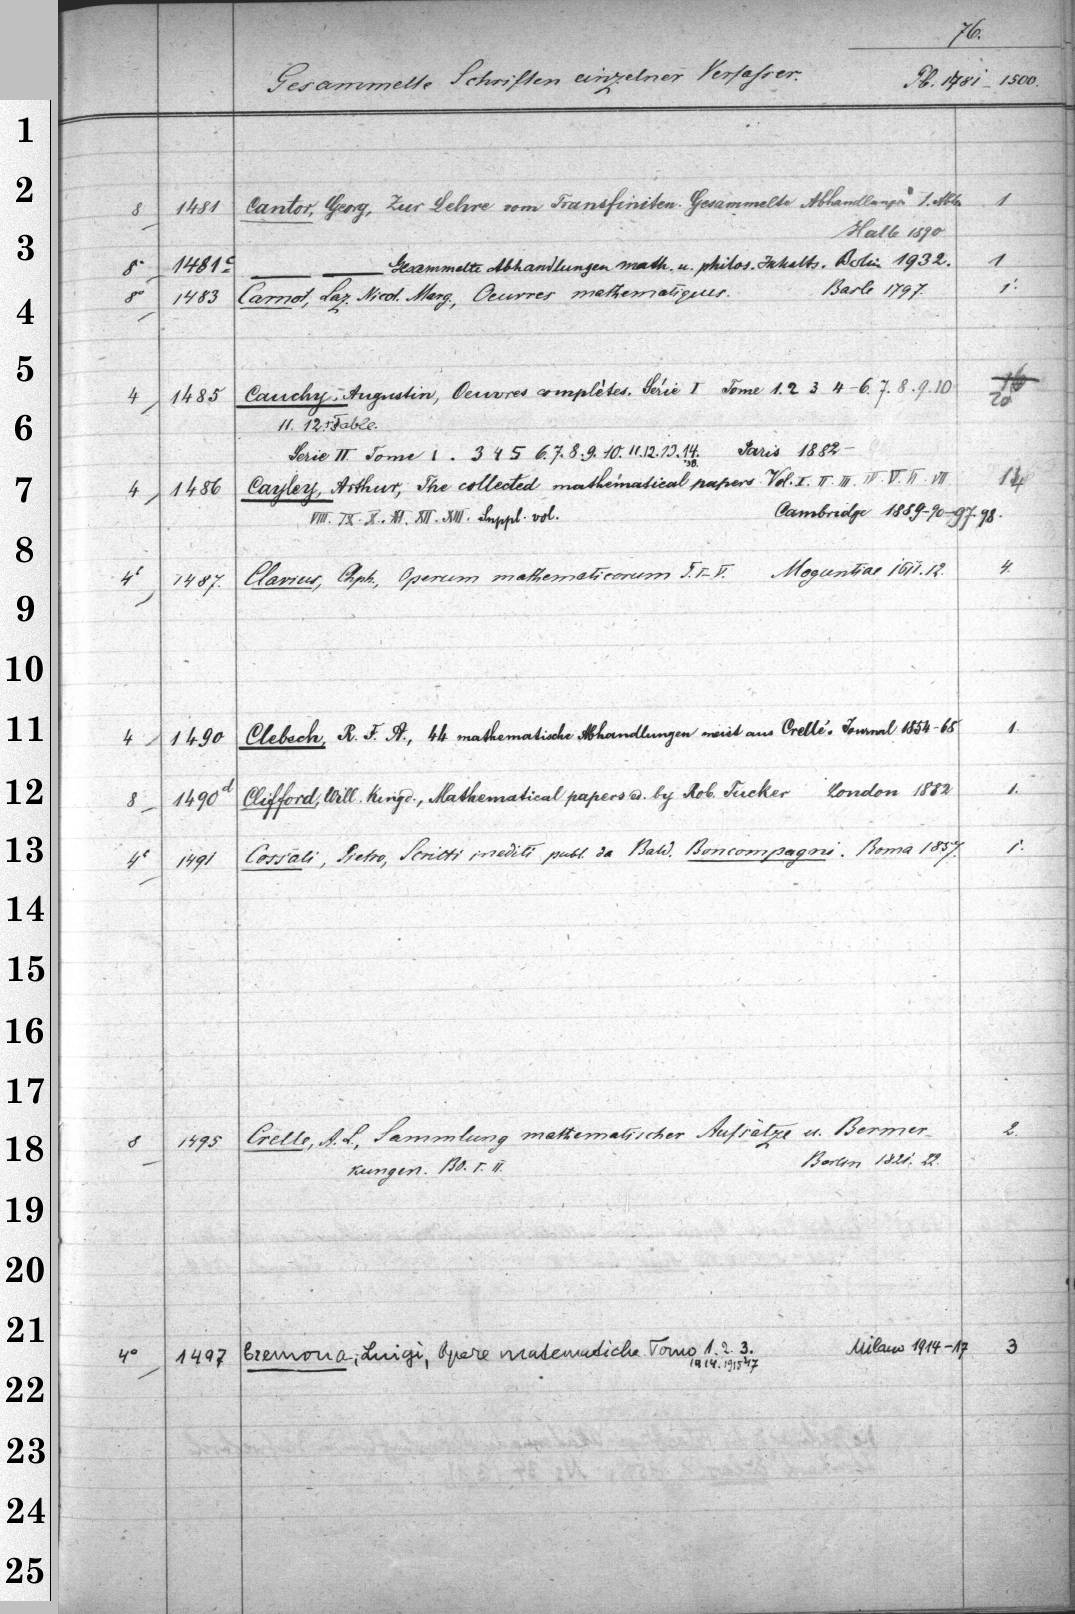 76.
Gesammelte Schriften einzelner Verfasser. Pb. 1481 – 1500.
1
2
8 1481 Cantor, Georg, Zur Lehre vom Transfiniten. Gesammelte Abhandlungen 1. Abt. 1
Halle 1890
3
8° 1481c Gesammelte Abhandlungen math. u. philos. Inhalts. Berlin 1932. 1
8° 1483 Carnot, Laz. Nicol. Marg., Oeuvres mathematiques. Basle 1797. 1.
4
5
4 1485 Cauchy, Augustin, Oeuvres complètes. Série I Tome 1. 2 3 4 – 6. 7. 8. 9. 10 20
6
11. 12. Table.
Serie II Tome 1 . 3 4 5 6. 7. 8. 9. 10. 11. 12. 13. 14. Paris 1882 –
7
4 1486 Cayley, Arthur, The collected mathematical papers Vol. I. II. III. IV. V. VI. VII 14
VIII. IX. X. XI. XII. XIII. Suppl. vol. Cambridge 1889-90-97. 98.
8
4° 1487. Clavius, Chph., Operum mathematicorum T. I–V. Moguntiae 1611. 12. 4.
9
10
11
4 1490 Clebsch, R. F. A., 44 mathematische Abhandlungen meist aus Crelle's Journal 1854-65 1.
12
8 1490d Clifford, Will. Kingd., Mathematical papers ed. by Rob. Tucker London 1882 1.
13
4° 1491 Cossali, Pietro, Scritti inediti publ. da Bald. Boncompagni. Roma 1857. 1.
14
15
16
17
18
8 1495 Crelle, A. L., Sammlung mathematischer Aufsätze u. Bermer- 2.
kungen. Bd. I. II. Berlin 1821. 22.
19
20
21
4° 1497 Cremona, Luigi, Opere matematiche Tomo 1. 2. 3. Milano 1914-17 3
1914. 1915 17
22
23
24
25